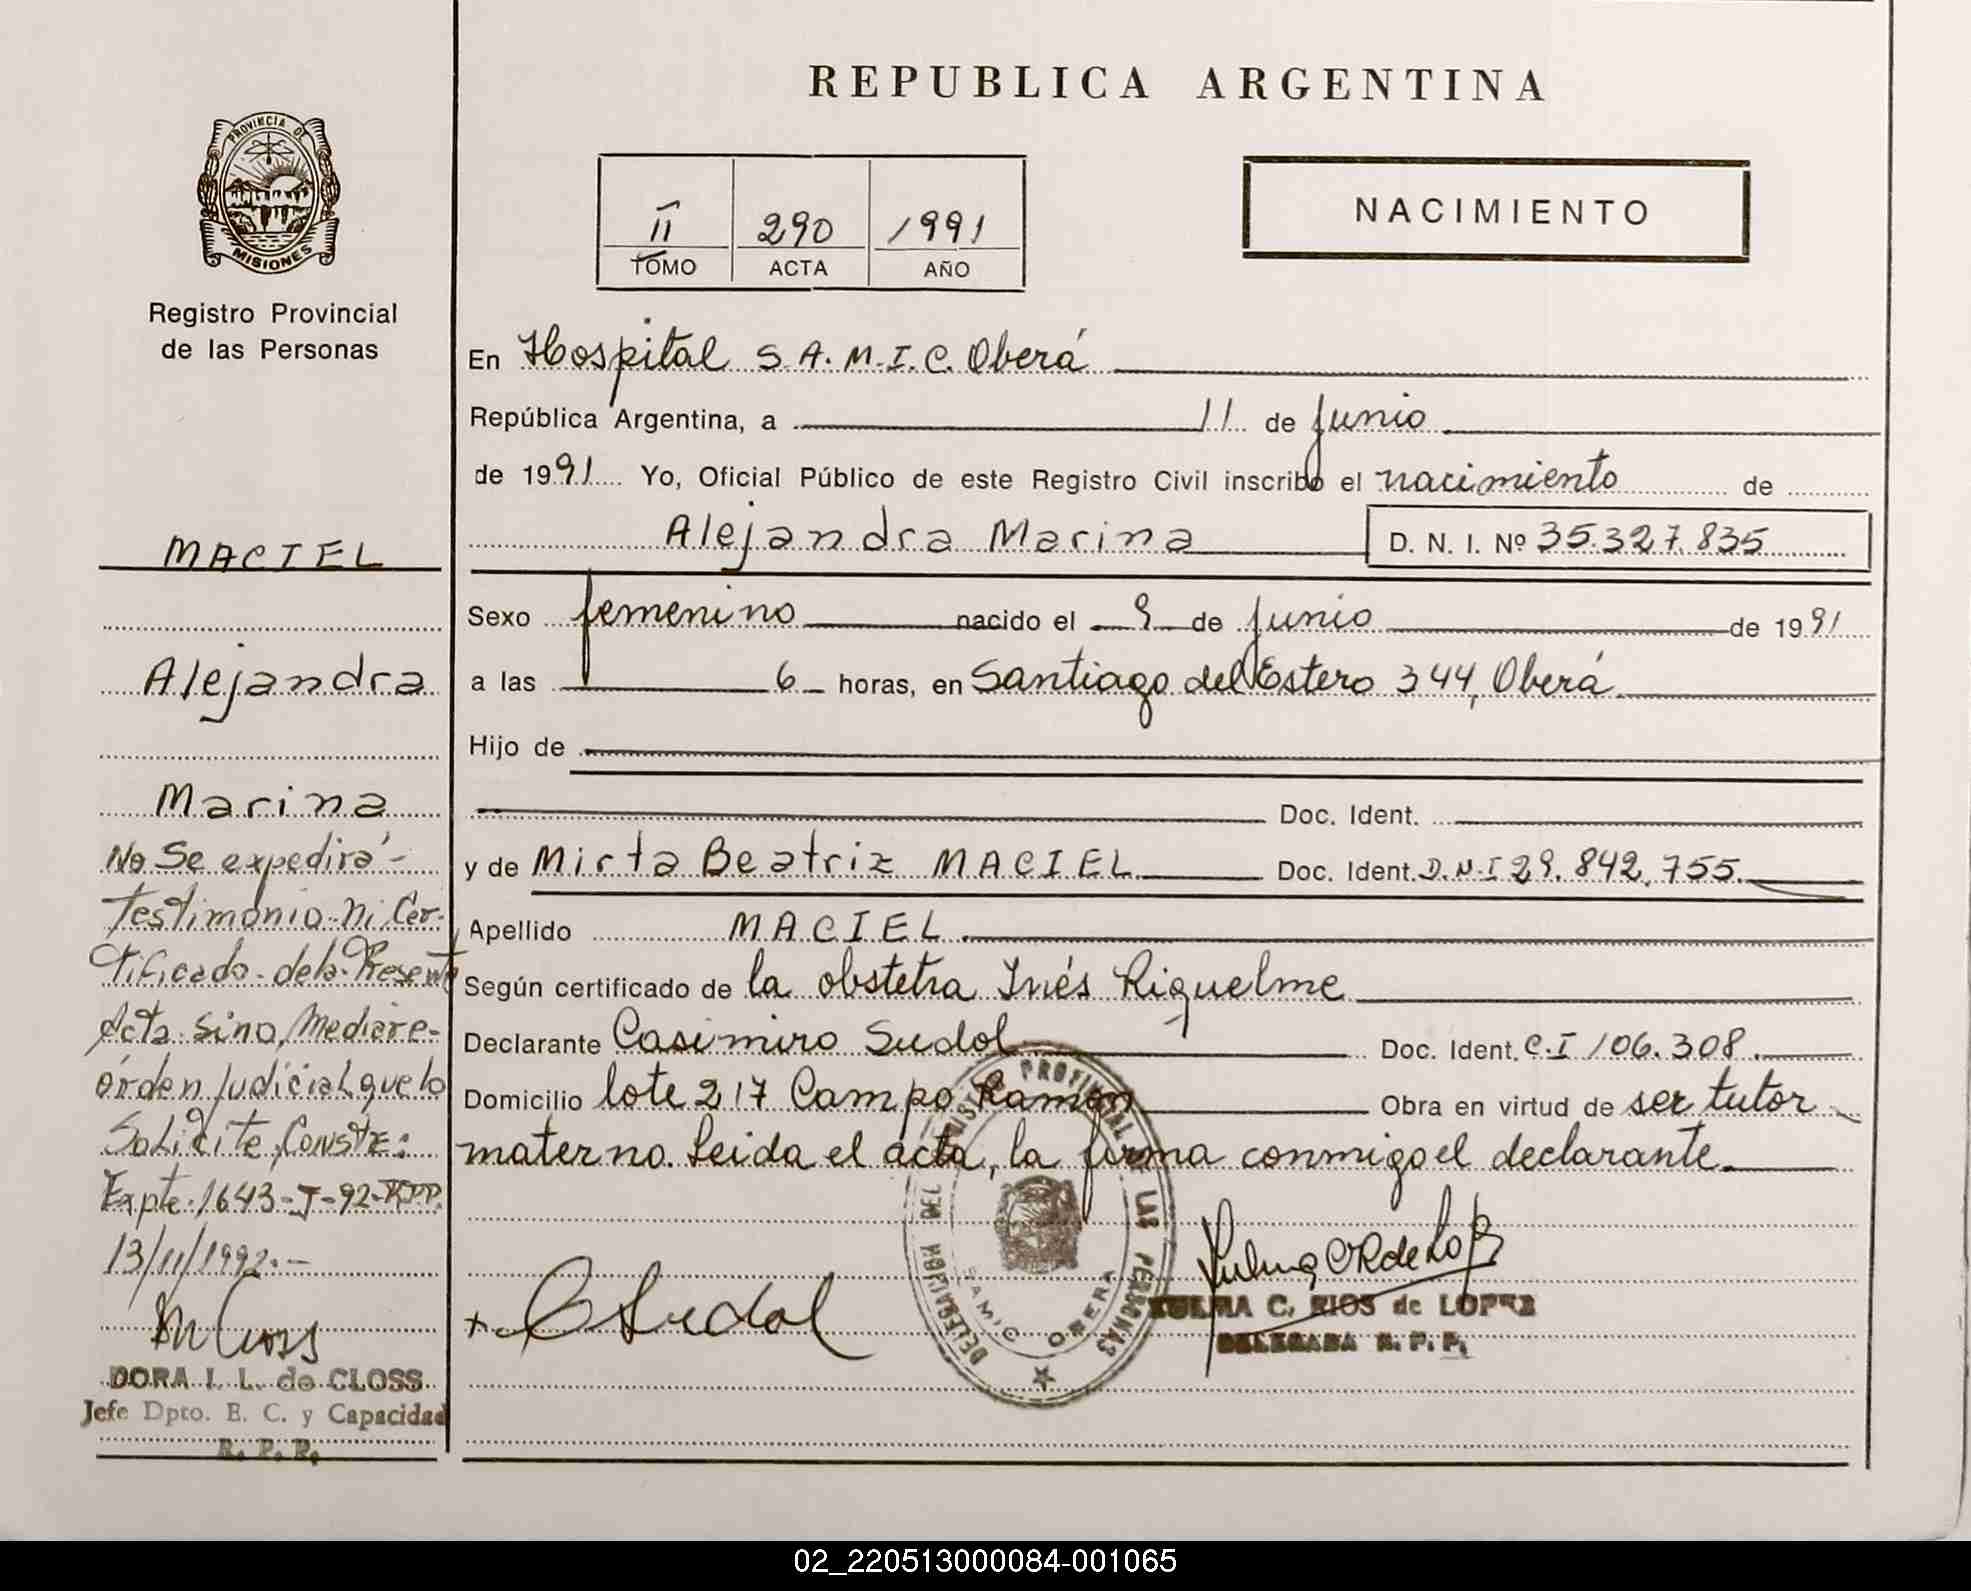 REPUBLICA ARGENTINA
PROVINCIA DE
MISIONES
Registro Provincial
de las Personas
II 290 1991
TOMO ACTA AÑO
NACIMIENTO
En Hospital S.A.M.I.C. Oberá
República Argentina, a 11 de Junio
de 1991 Yo, Oficial Público de este Registro Civil inscribo el nacimiento de
Alejandra Marina D. N. I. Nº 35.327.835
Sexo femenino nacido el 9 de Junio de 1991
a las 6 horas, en Santiago del Estero 344, Oberá
Hijo de
Doc. Ident.
y de Mirta Beatriz MACIEL Doc. Ident. D.N.I 29.842.755
Apellido MACIEL
Según certificado de la obstetra Inés Riquelme
Declarante Casimiro Sudol Doc. Ident. C.I 106.308
Domicilio lote 217 Campo Ramon Obra en virtud de ser tutor
materno. Leida el acta, la firma conmigo el declarante
MACIEL
Alejandra
Marina
No Se expedirá-
Testimonio ni Cer-
tificado de la Presente
Acta sino, Mediare-
órden Judicial que lo
Solicite, Conste:
Expte. 1643-J-92-RPP.
13/11/1992.-
DORA I. L. de CLOSS
Jefe Dpto. E. C. y Capacidad
R. P. P.
C Sudol
DEL REGISTRO PROVINCIAL DE LAS PERSONAS
SAMIC OBERA
ZULMA C. RIOS de LOPEZ
DELEGADA R. P. P.
02_220513000084-001065